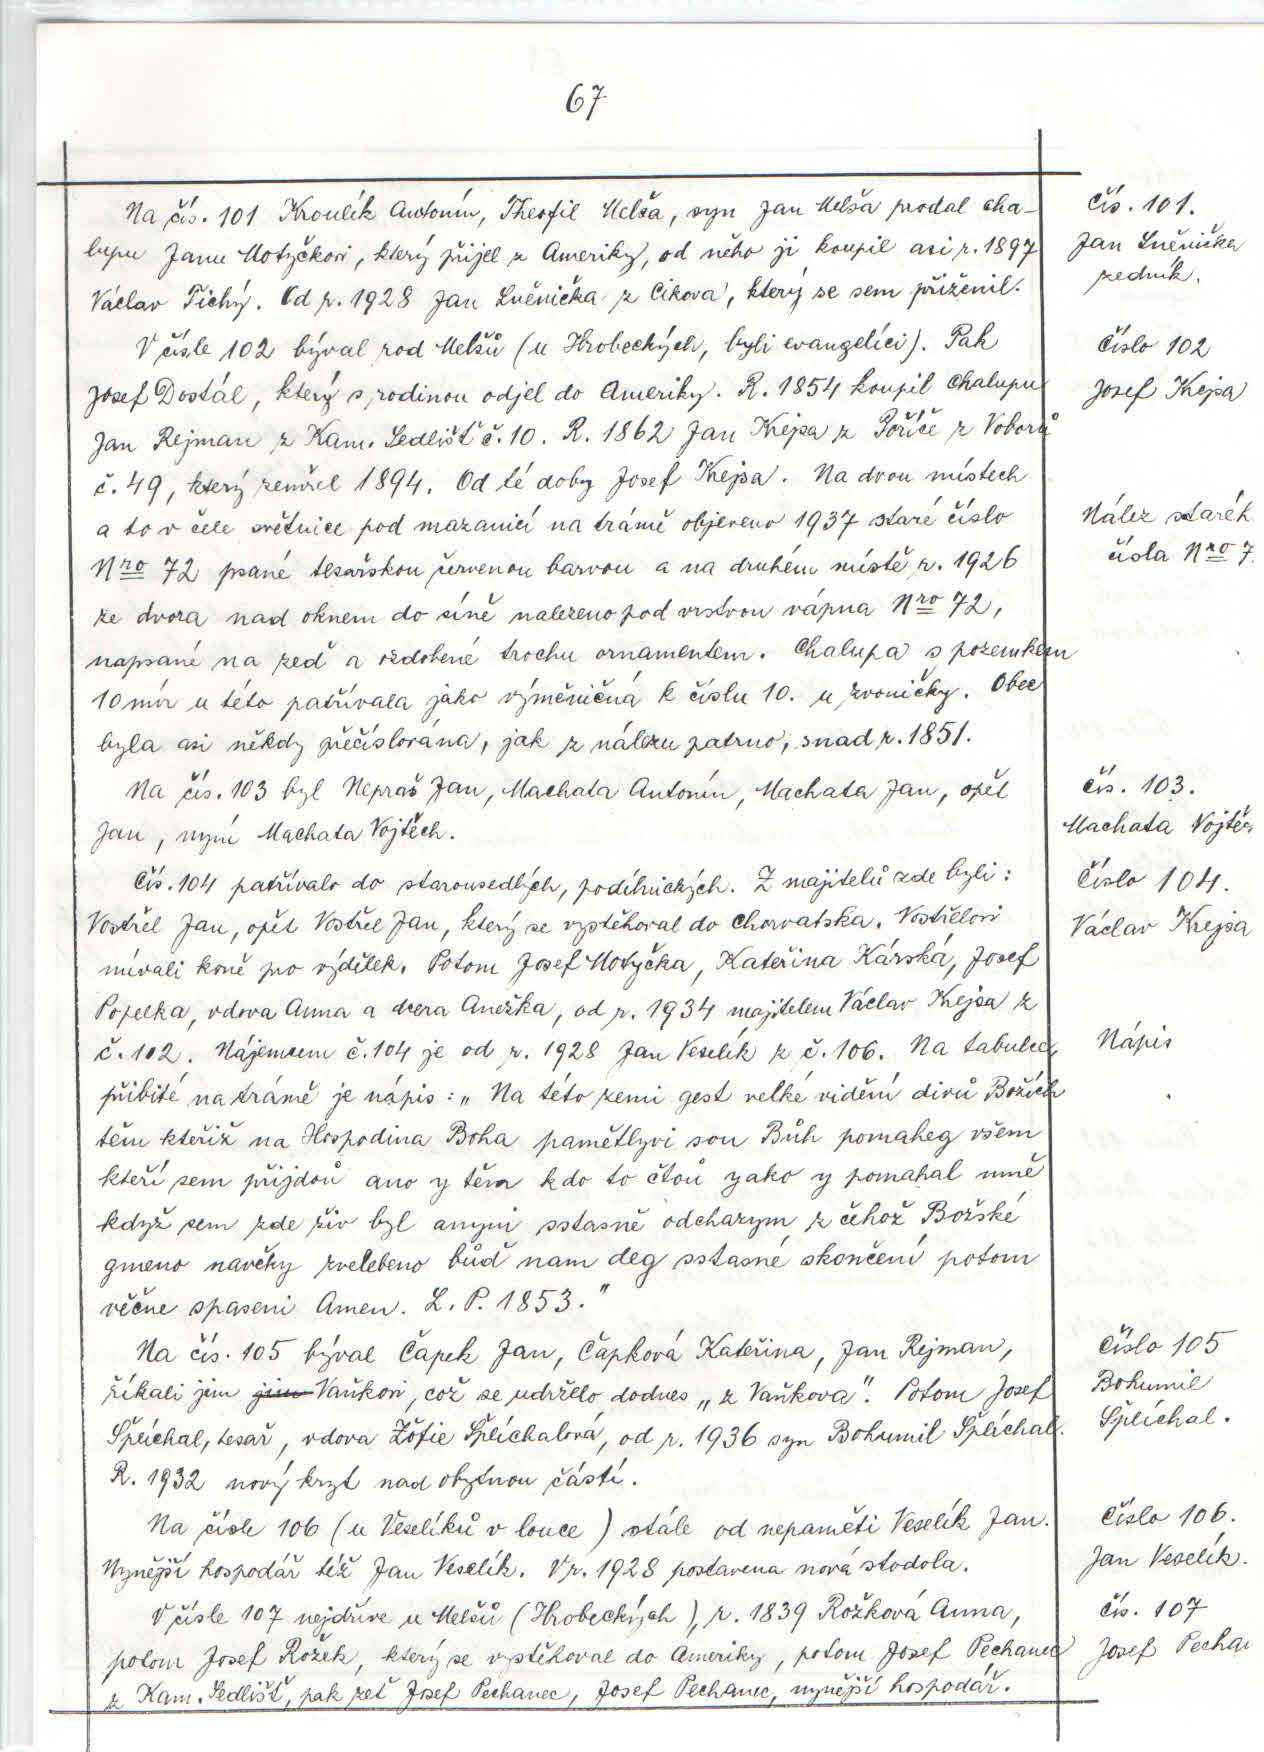 67
Na čís. 101 Kroulík Antonín, Theofil Melša, syn Jan Melša prodal cha-
lupu Janu Motyčkovi, který přijel z Ameriky, od něho ji koupil asi r. 1897
Václav Tichý. Od r. 1928 Jan Lněnička z Cikova, který se sem přiženil.
V čísle 102 býval rod Melšů (u Hrobeckých, byli evangelíci). Pak
Josef Dostál, který s rodinou odjel do Ameriky. R. 1854 koupil chalupu
Jan Rejman z Kam. Sedlišť č. 10. R. 1862 Jan Krejsa z Poříče z Voborů
č. 49, který zemřel 1894. Od té doby Josef Krejsa. Na dvou místech
a to v čele světnice pod mazanicí na trámě objeveno 1937 staré číslo
Nro 72 psané tesařskou červenou barvou a na druhém místě r. 1926
ze dvora nad oknem do síně nalezeno pod vrstvou vápna Nro 72,
napsané na zeď a ozdobené trochu ornamentem. Chalupa s pozemkem
10 mír u této patřívala jako výměničná k číslu 10. u zvoničky. Obec
byla asi někdy přečíslována, jak z nálezu patrno, snad r. 1851.
Na čís. 103 byl Nepraš Jan, Machata Antonín, Machata Jan, opět
Jan, nyní Machata Vojtěch.
Čís. 104 patřívalo do starousedlých, podílnických. Z majitelů zde byli:
Vostřel Jan, opět Vostřel Jan, který se vystěhoval do Chorvatska. Vostřelovi
mívali koně pro výdělek. Potom Josef Motyčka, Kateřina Kárská, Josef
Popelka, vdova Anna a dcera Anežka, od r. 1934 majitelem Václav Krejsa z
č. 102. Nájemcem č. 104 je od r. 1928 Jan Veselík z č. 106. Na tabulce,
přibité na trámě je nápis: „Na této zemi gest velké vidění divů Božích
těm kteřiž na Hospodina Boha pamětlyvi sou Bůh pomaheg všem
kteří sem přijdoů ano y těm kdo to čtoů yako y pomahal mně
když sem zde živ byl anyni sstasně odchazym z čehož Božské
gmeno navěky zvelebeno bůď nam deg sstasné skončení potom
věčne spaseni Amen. L. P. 1853."
Na čís. 105 býval Čapek Jan, Čapková Kateřina, Jan Rejman,
říkali jim jim Vaňkovi, což se udrželo dodnes „z Vaňkova". Potom Josef
Šplíchal, tesař, vdova Žófie Šplíchalová, od r. 1936 syn Bohumil Šplíchal.
R. 1932 nový kryt nad obytnou částí.
Na čísle 106 (u Veselíků v louce) stále od nepaměti Veselík Jan.
Nynější hospodář též Jan Veselík. V r. 1928 postavena nová stodola.
V čísle 107 nejdříve u Melšů (Hrobeckých), r. 1839 Rožková Anna,
potom Josef Rožek, který se vystěhoval do Ameriky, potom Josef Pechanec
z Kam. Sedlišť, pak zeť Josef Pechanec, Josef Pechanec, nynější hospodář.
Čís. 101.
Jan Lněnička
zedník.
Číslo 102
Josef Krejsa
Nález staréh
čísla Nro 7
Čís. 103.
Machata Vojtěc
Číslo 104.
Václav Krejsa
Nápis
Číslo 105
Bohumil
Šplíchal.
Číslo 106.
Jan Veselík.
Čís. 107
Josef Pechan